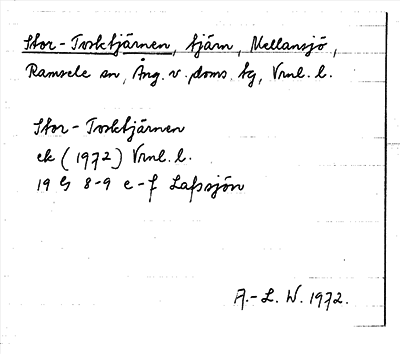 Stor-Torktjärnen, tjärn, Mellansjö,
Ramsele sn, Ång. v. doms. tg, Vrnl. l.
Stor-Torktjärnen
ek (1972) Vrnl. l.
19 G 8-9 e-f Lafssjön
A.-L. W. 1972.